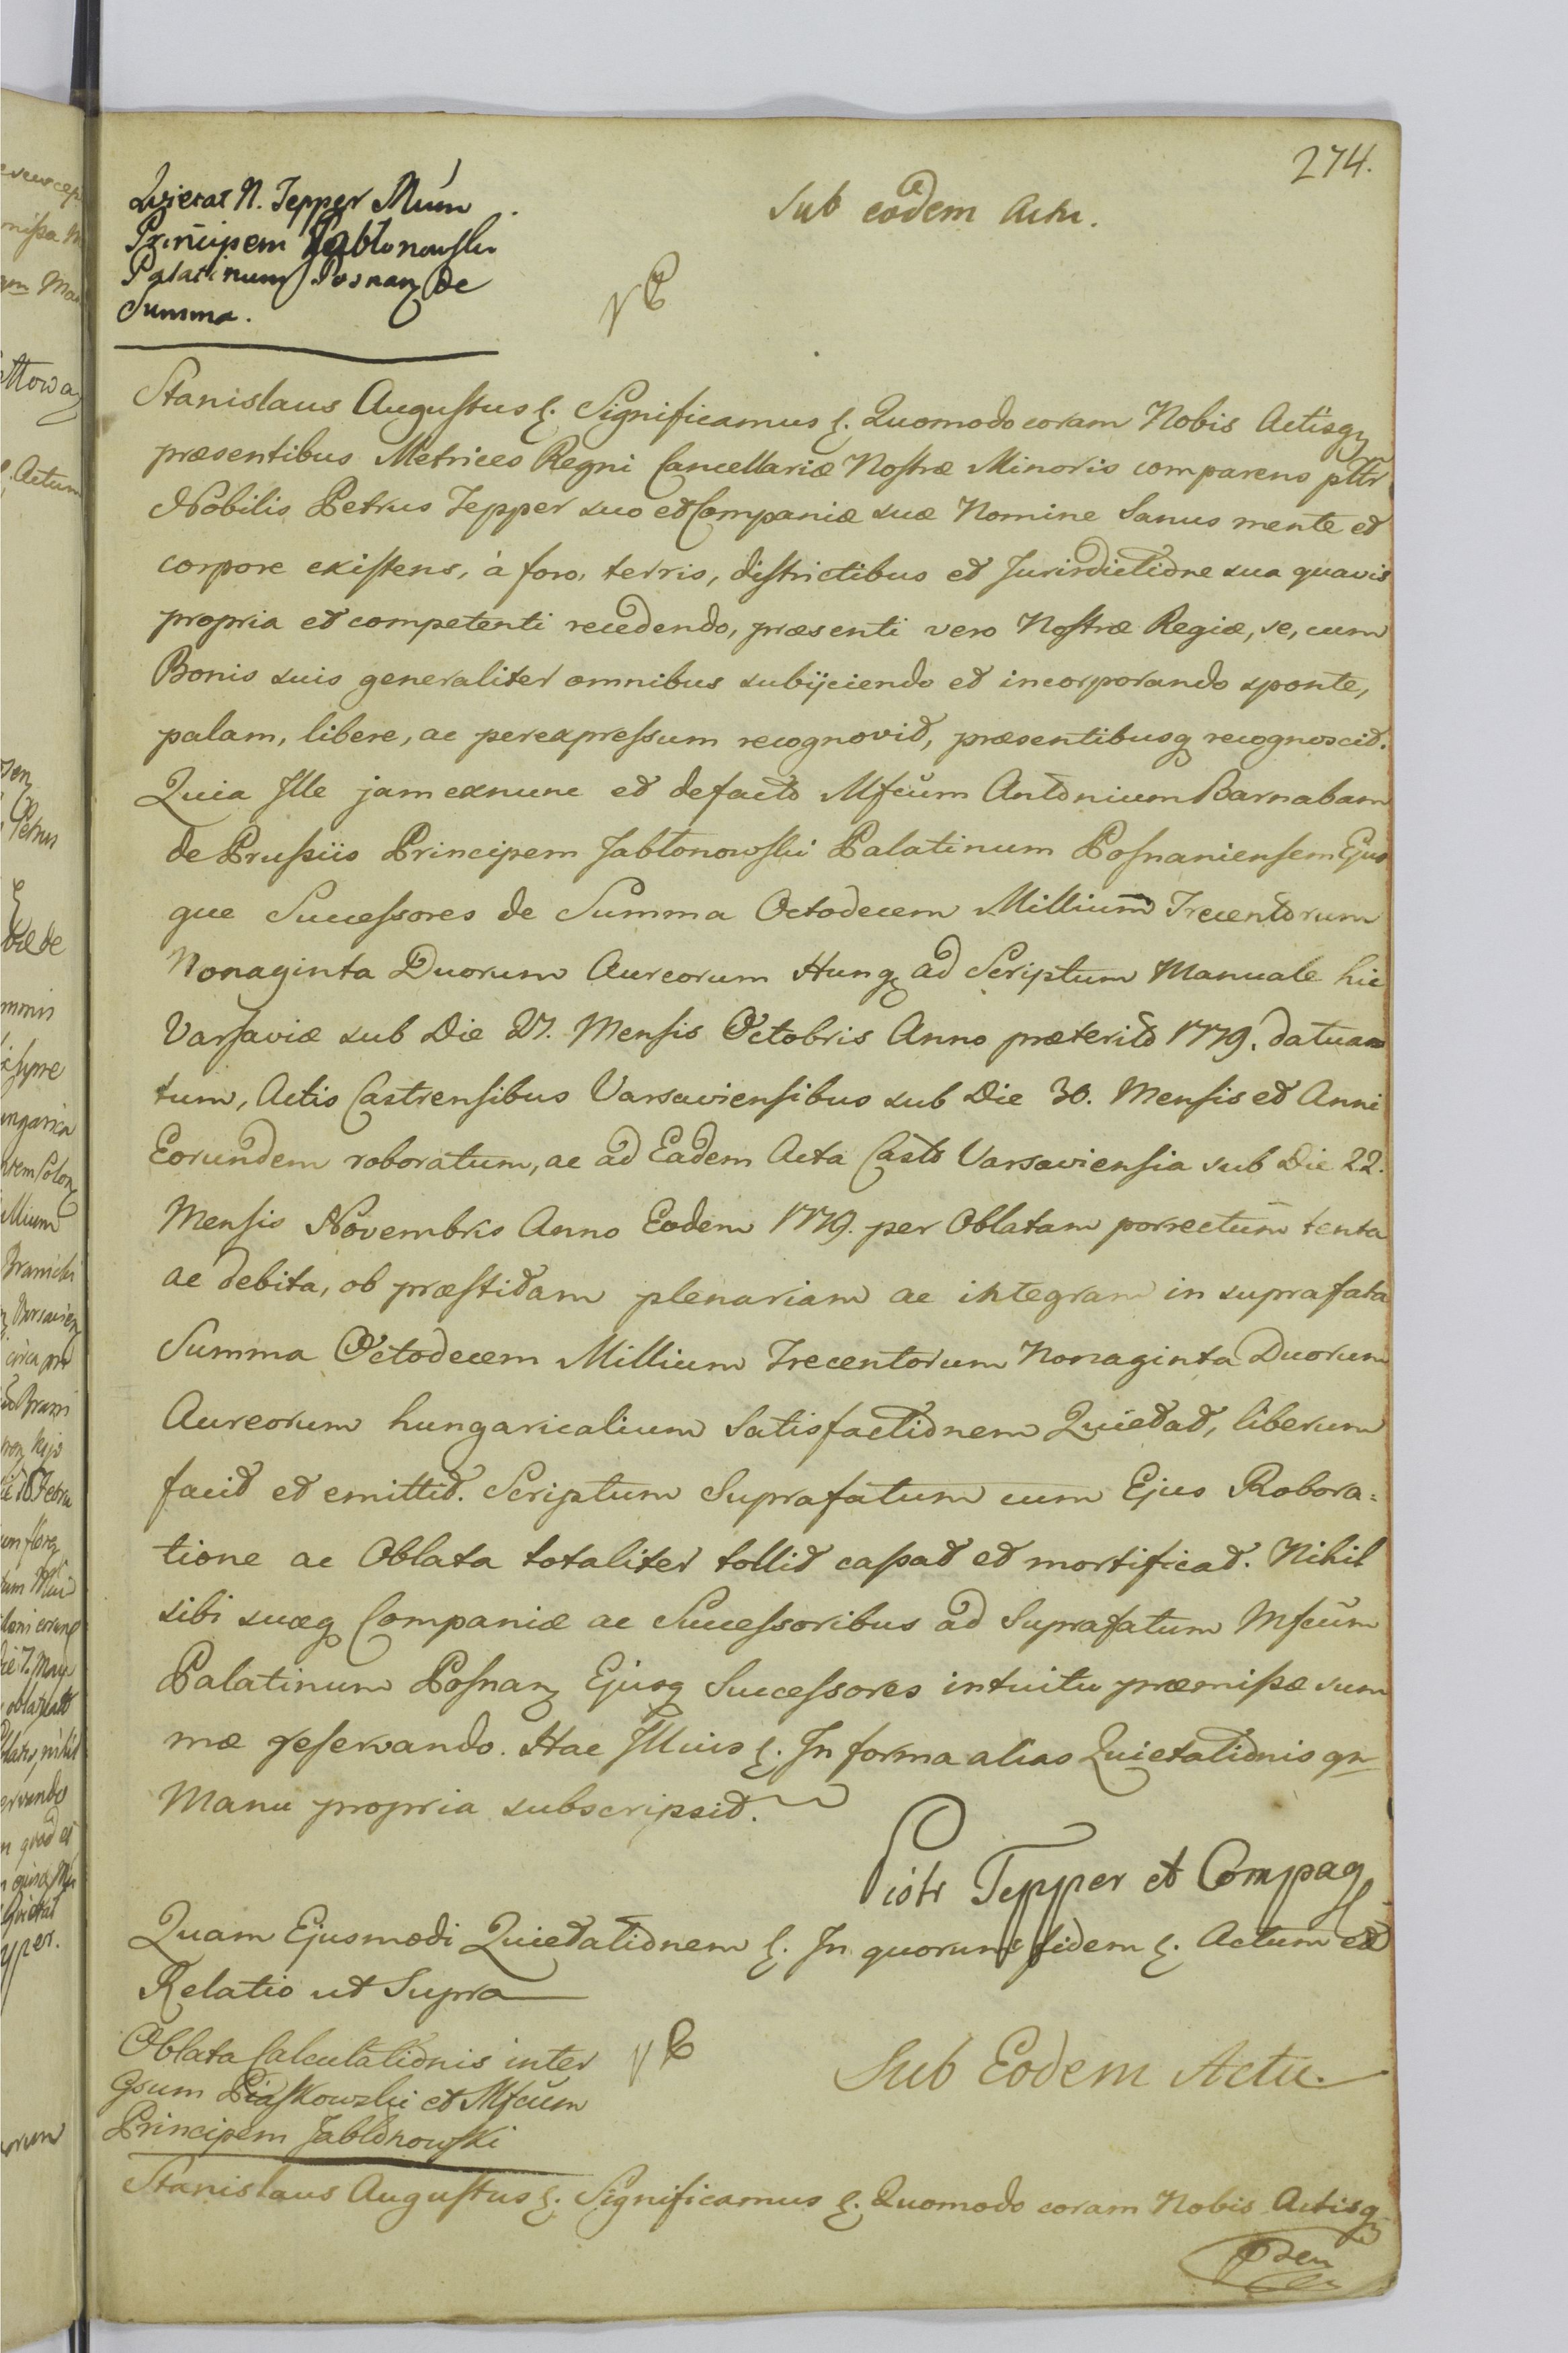 274.
Quietat N. Tepper Mfcum
Principem Jabłonowski
Palatinum Posnan de
Summa.
Sub eodem Actu.
Stanislaus Augustus &. Significamus &. Quomodo coram Nobis Actisq
præsentibus Metrices Regni Cancellariæ Nostræ Minoris comparens pltr
Nobilis Petrus Tepper suo et Companiæ suæ Nomine Sanus mente et
corpore existens, à foro, terris, districtibus et Jurisdictione sua quavis
propria et competenti recedendo, præsenti vero Nostræ Regiæ, se, cum
Bonis suis generaliter omnibus subijciendo et incorporando sponte,
palam, libere, ac per expressum recognovit, præsentibusq recognoscit.
Quia Ille jam exnunc et defacto Mfcum Antonium Barnabam
de Prussiis Principem Jabłonowski Palatinum Posnaniensem Ejus
que Successores de Summa Octodecem Millium Trecentorum
Nonaginta Duorum Aureorum Hung ad Scriptum Manuale hic
Varsaviæ sub Die 27. Mensis Octobris Anno præterito 1779. datum
tum, Actis Castrensibus Varsaviensibus sub Die 30. Mensis et Anni
Eorundem roboratum, ac ad Eadem Acta Casts Varsaviensia sub Die 22.
Mensis Novembris Anno Eodem 1779. per Oblatam porrectum tenta
ac debita, ob præstitam plenariam ac integram in suprafata
Summa Octodecem Millium Trecentorum Nonaginta Duorum
Aureorum hungaricalium Satisfactionem Quietat, liberum
facit et emittit. Scriptum Suprafatum cum Ejus Robora=
tione ac Oblata totaliter tollit cassat et mortificat. Nihil
sibi suæq Companiæ ac Successoribus ad Suprafatum Mfcum
Palatinum Posnan Ejusq Successores intuitu præmissæ sum
mæ reservando. Hac Illius &. In forma alias Quietationis qn
Manu propria subscripsit.
Piotr Tepper et Compag
Quam Ejusmodi Quietationem &. In quorum fidem &. Actum et
Relatio ut Supra
Oblata Calculationis inter
Gsum Piaskowski et Mfcum
Principem Jabłonowski
Sub Eodem Actu.
Stanislaus Augustus &. Significamus &. Quomodo coram Nobis Actisq